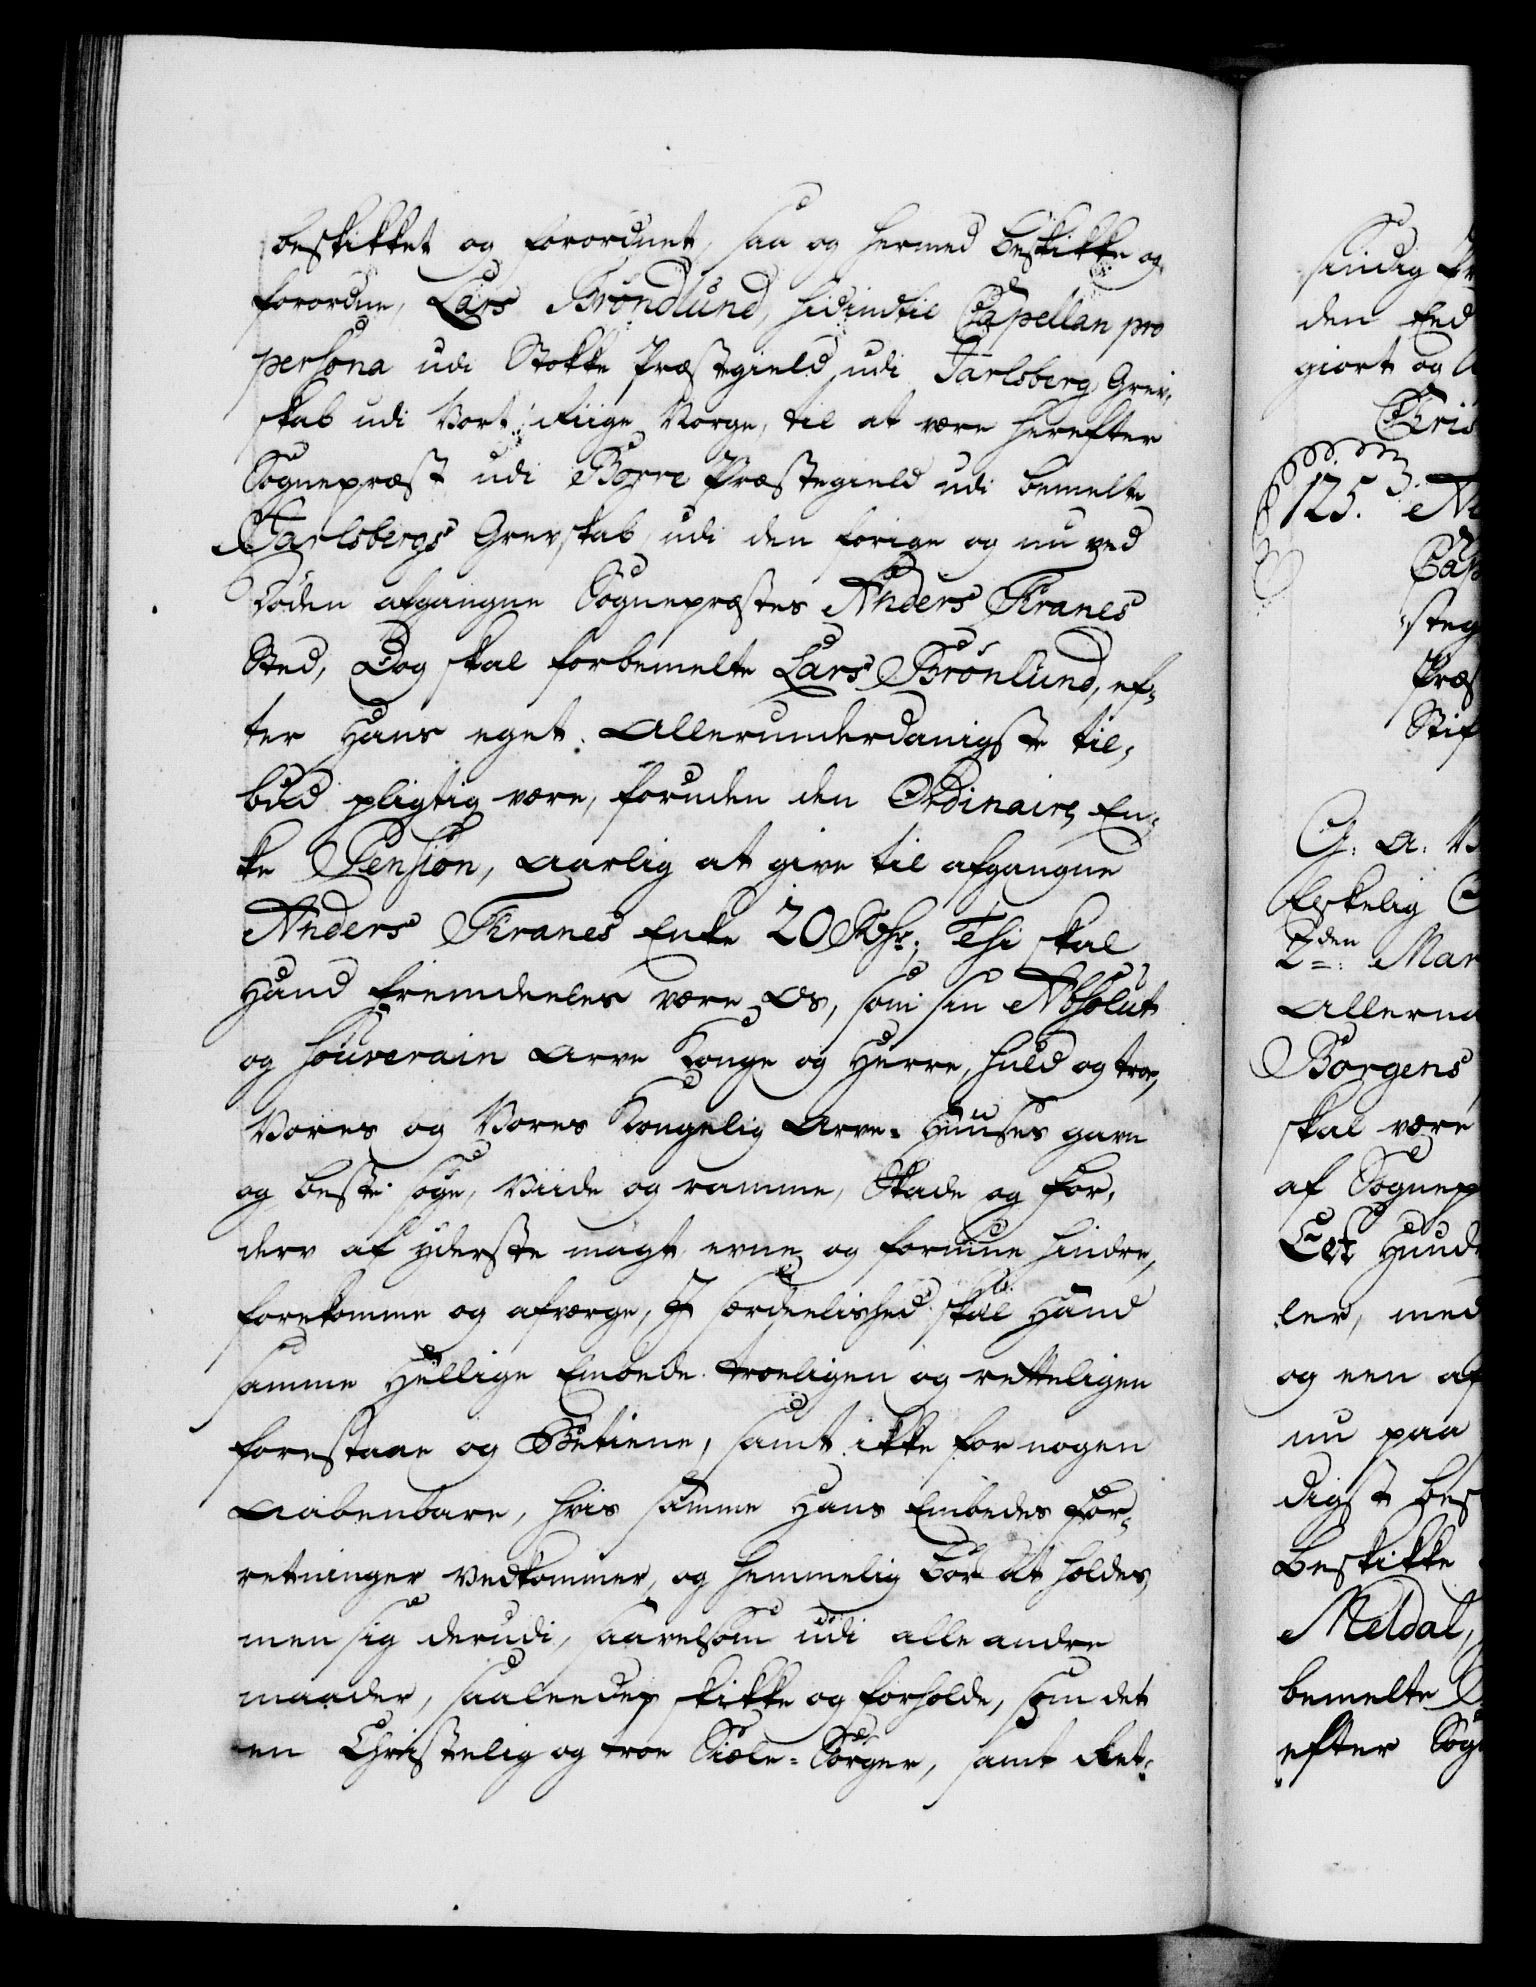 beskikket og forordnet, saa og hermed beskikke og
forordne, Lars Brøndlund, hidindtil Capellan pro
persona udi Stokke Præstegield udi Jarlsberg Grev-
skab udi Vort Riige Norge, til at være herefter
Sognepræst udi Borre Præstegield udi bemelte
Jarlsbergs Grevskab, udi den forige og nu ved
Døden afgangne Sognepræstes Anders Kranes
Sted, Dog skal forbemelte Lars Brønlund, ef-
ter Hans eget Allerunderdanigste til-
bud pligtig være, foruden den Ordinaire En-
ke Pension, aarlig at give til afgangne
Anders Kranes Enke 20 Rdr; Thi skal
Hand fremdeeles være Os, som sin Absolut
og Souverain Arve Konge og Herre, huld og troe,
Vores og Vores Kongelig Arve-Huuses gavn
og beste søge, Viide og ramme, Skade og For-
derv af yderste magt evne og formue hindre,
forekomme og afværge, I særdeelished skal Hand
samme Hellige Embede troeligen og retteligen
forestaae og Betiene, samt ikke for nogen
Aabenbare, hvis samme Hans Embedes For-
retninger vedkommer, og hemmelig bør at holdes,
men sig derudi, saavelsom udi alle andre
maader, saaleedes skikke og forholde, som det
en Christelig og troe Siæle-Sørger, samt Ret-
sindig
den Eed
giort og
125.
steg
Præs
Stif
G: A: V
Eskelig
2den Mar
Allerna
Borgens
skal være
af Sognep
Eet Hundr
ler, med
og een af
nu paa
digst bes
beskikke
Meldal,
bemelte
efter Sog